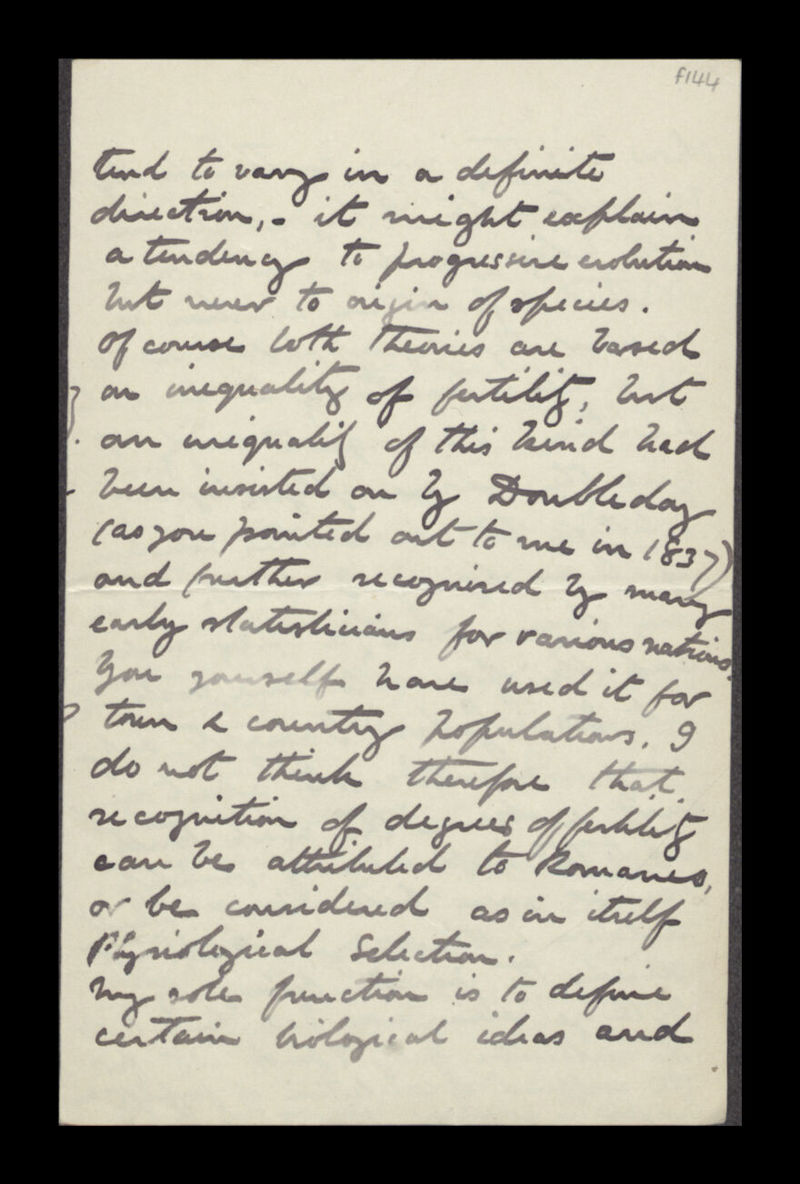 f144
tend to vary in a definite
direction,- it might explain
a tendency to progressive evolution
but never to origin of species.
Of course both theories are based
on inequality of fertility, but
an inequality of this kind had
been insisted on by Doubleday
(as you pointed out to me in 1837)
and further recognised by many
early statisticians for various nations.
You yourself have used it for
town & country populations. I
do not think therefore that
recognition of degrees of fertility
can be attributed to Romanes,
or be considered as in itself
Physiological Selection.
My sole function is to define
certain biological ideas and